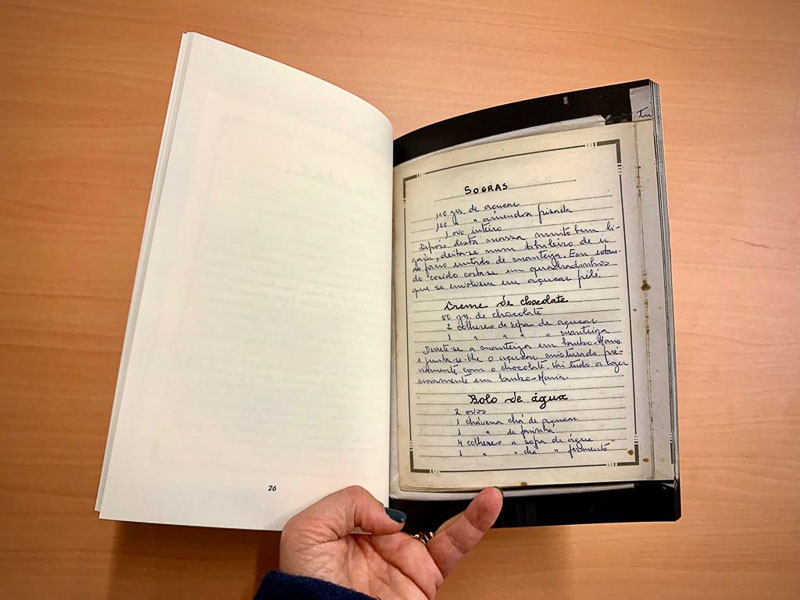 26
Tu
SOGRAS
100 grs. de açucar
100 " " amendoa pisada
1 ovo inteiro
Depois desta massa muito bem li-
gada, deita-se num taboleiro de ir
ao forno untado de manteiga. Em estan-
do cosido corta-se em quadradinhos
que se envolvem em açucar pilé
Creme de chocolate
00 grs. de chocolate
2 colheres de sopa de açucar
1 " " " " manteiga
Derrete-se a manteiga em banho-Maria
e junta-se-lhe o açucar misturado pré-
viamente com o chocolate. Vai tudo a coger
novamente em banho-Maria.
Bolo de água
2 ovos
1 chávena chá de açucar
1 " " de farinha
4 colheres " sopa de água
1 " " chá " fermento